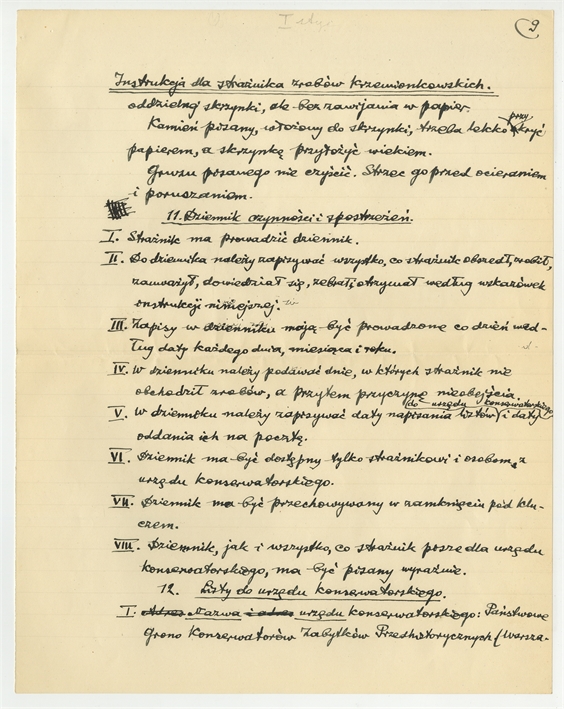 9
Instrukcja dla strażnika zrębów Krzemionkowskich.
oddzielną skrzynki, ale bez zawijania w papier.
Kamień pisany, włożony do skrzynki, trzeba lekko przykryć
papierem, a skrzynkę przyłożyć wiekiem.
Gruzu pisanego nie czyścić. Strzec go przed ocieraniem
i poruszaniem.
11. Dziennik czynności i spostrzeżeń.
I. Strażnik ma prowadzić dziennik.
II. Do dziennika należy zapisywać wszystko, co strażnik obszedł, zrobił,
zauważył, dowiedział się, zebrał, otrzymał według wskazówek
instrukcji niniejszej.
III. Zapisy w dzienniku mają być prowadzone co dzień wed-
ług daty każdego dnia, miesiąca i roku.
IV. W dzienniku należy podawać dnie, w których strażnik nie
obchodził zrębów, a przytem przyczynę nieobejścia.
V. W dzienniku należy zapisywać daty napisania listów do urzędu konserwatorskiego i daty
oddania ich na pocztę.
VI. Dziennik ma być dostępny tylko strażnikowi i osobom z
urzędu konserwatorskiego.
VII. Dziennik ma być przechowywany w zamknięciu pod klu-
czem.
VIII. Dziennik, jak i wszystko, co strażnik pisze dla urzędu
konserwatorskiego, ma być pisany wyraźnie.
12. Listy do urzędu konserwatorskiego.
I. Adres Nazwa i adres urzędu konserwatorskiego: Państwowe
Grono Konserwatorów Zabytków Przedhistorycznych (Warsza-